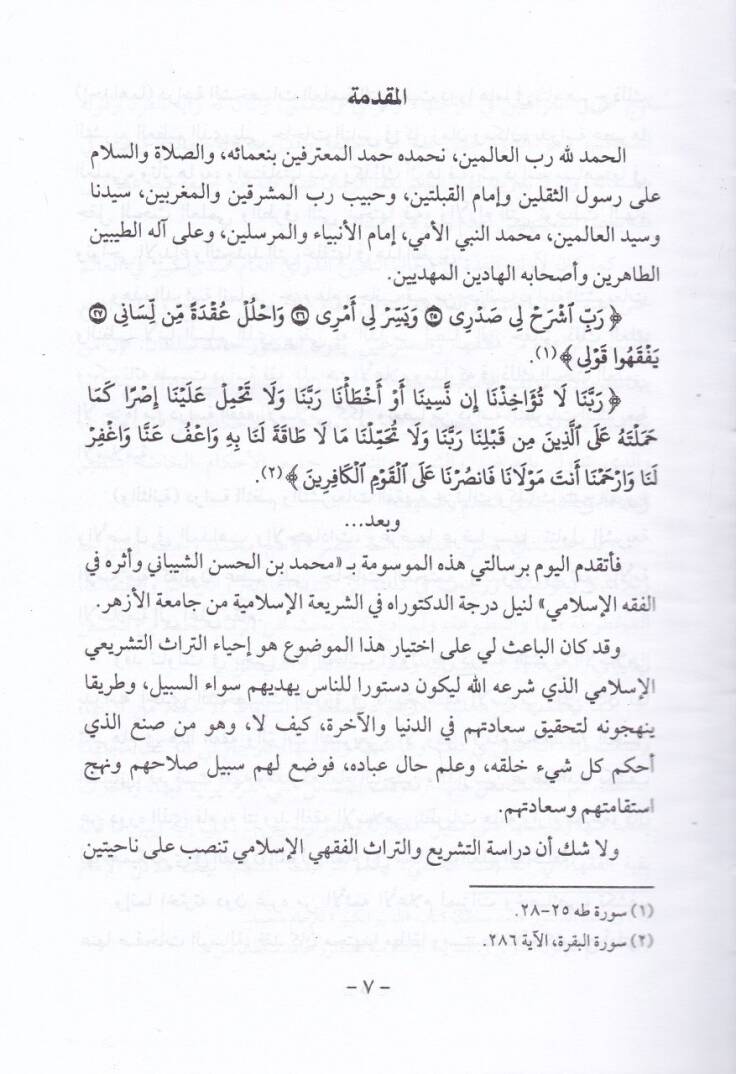 المقدمة
الحمد لله رب العالمين، نحمده حمد المعترفين بنعمائه، والصلاة والسلام
على رسول الثقلين وإمام القبلتين، وحبيب رب المشرقين والمغربين، سيدنا
وسيد العالمين، محمد النبي الأمي، إمام الأنبياء والمرسلين، وعلى آله الطيبين
الطاهرين وأصحابه الهادين المهديين.
﴿ رَبِّ اشْرَحْ لِي صَدْرِى ٢٥ وَيَسِّرْ لِي أَمْرِى ٢٦ وَاحْلُلْ عُقْدَةً مِن لِّسَانِي ٢٧
يَفْقَهُوا قَوْلِى ﴾(١).
﴿ رَبَّنَا لَا تُؤَاخِذْنَا إِن نَّسِينَا أَوْ أَخْطَأْنَا رَبَّنَا وَلَا تَحْمِلْ عَلَيْنَا إِصْرًا كَمَا
حَمَلْتَهُ عَلَى الَّذِينَ مِن قَبْلِنَا رَبَّنَا وَلَا تُحَمِّلْنَا مَا لَا طَاقَةَ لَنَا بِهِ وَاعْفُ عَنَّا وَاغْفِرْ
لَنَا وَارْحَمْنَا أَنتَ مَوْلَانَا فَانصُرْنَا عَلَى الْقَوْمِ الْكَافِرِينَ ﴾(٢).
وبعد...
فأتقدم اليوم برسالتي هذه الموسومة بـ «محمد بن الحسن الشيباني وأثره في
الفقه الإسلامي» لنيل درجة الدكتوراه في الشريعة الإسلامية من جامعة الأزهر.
وقد كان الباعث لي على اختيار هذا الموضوع هو إحياء التراث التشريعي
الإسلامي الذي شرعه الله ليكون دستورا للناس يهديهم سواء السبيل، وطريقا
ينهجونه لتحقيق سعادتهم في الدنيا والآخرة، كيف لا، وهو من صنع الذي
أحكم كل شيء خلقه، وعلم حال عباده، فوضع لهم سبيل صلاحهم ونهج
استقامتهم وسعادتهم.
ولا شك أن دراسة التشريع والتراث الفقهي الإسلامي تنصب على ناحيتين
(١) سورة طه ٢٥-٢٨.
(٢) سورة البقرة، الآية ٢٨٦.
- ٧ -